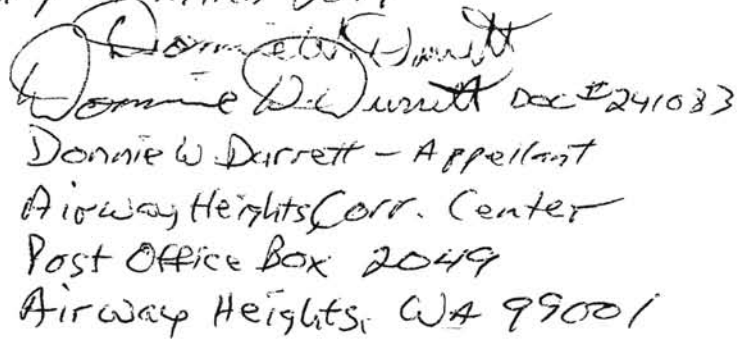 Donnie W. Durrett
Donnie W. Durrett DOC # 241083
Donnie W. Durrett - Appellant
Airway Heights Corr. Center
Post Office Box 2049
Airway Heights, WA 99001